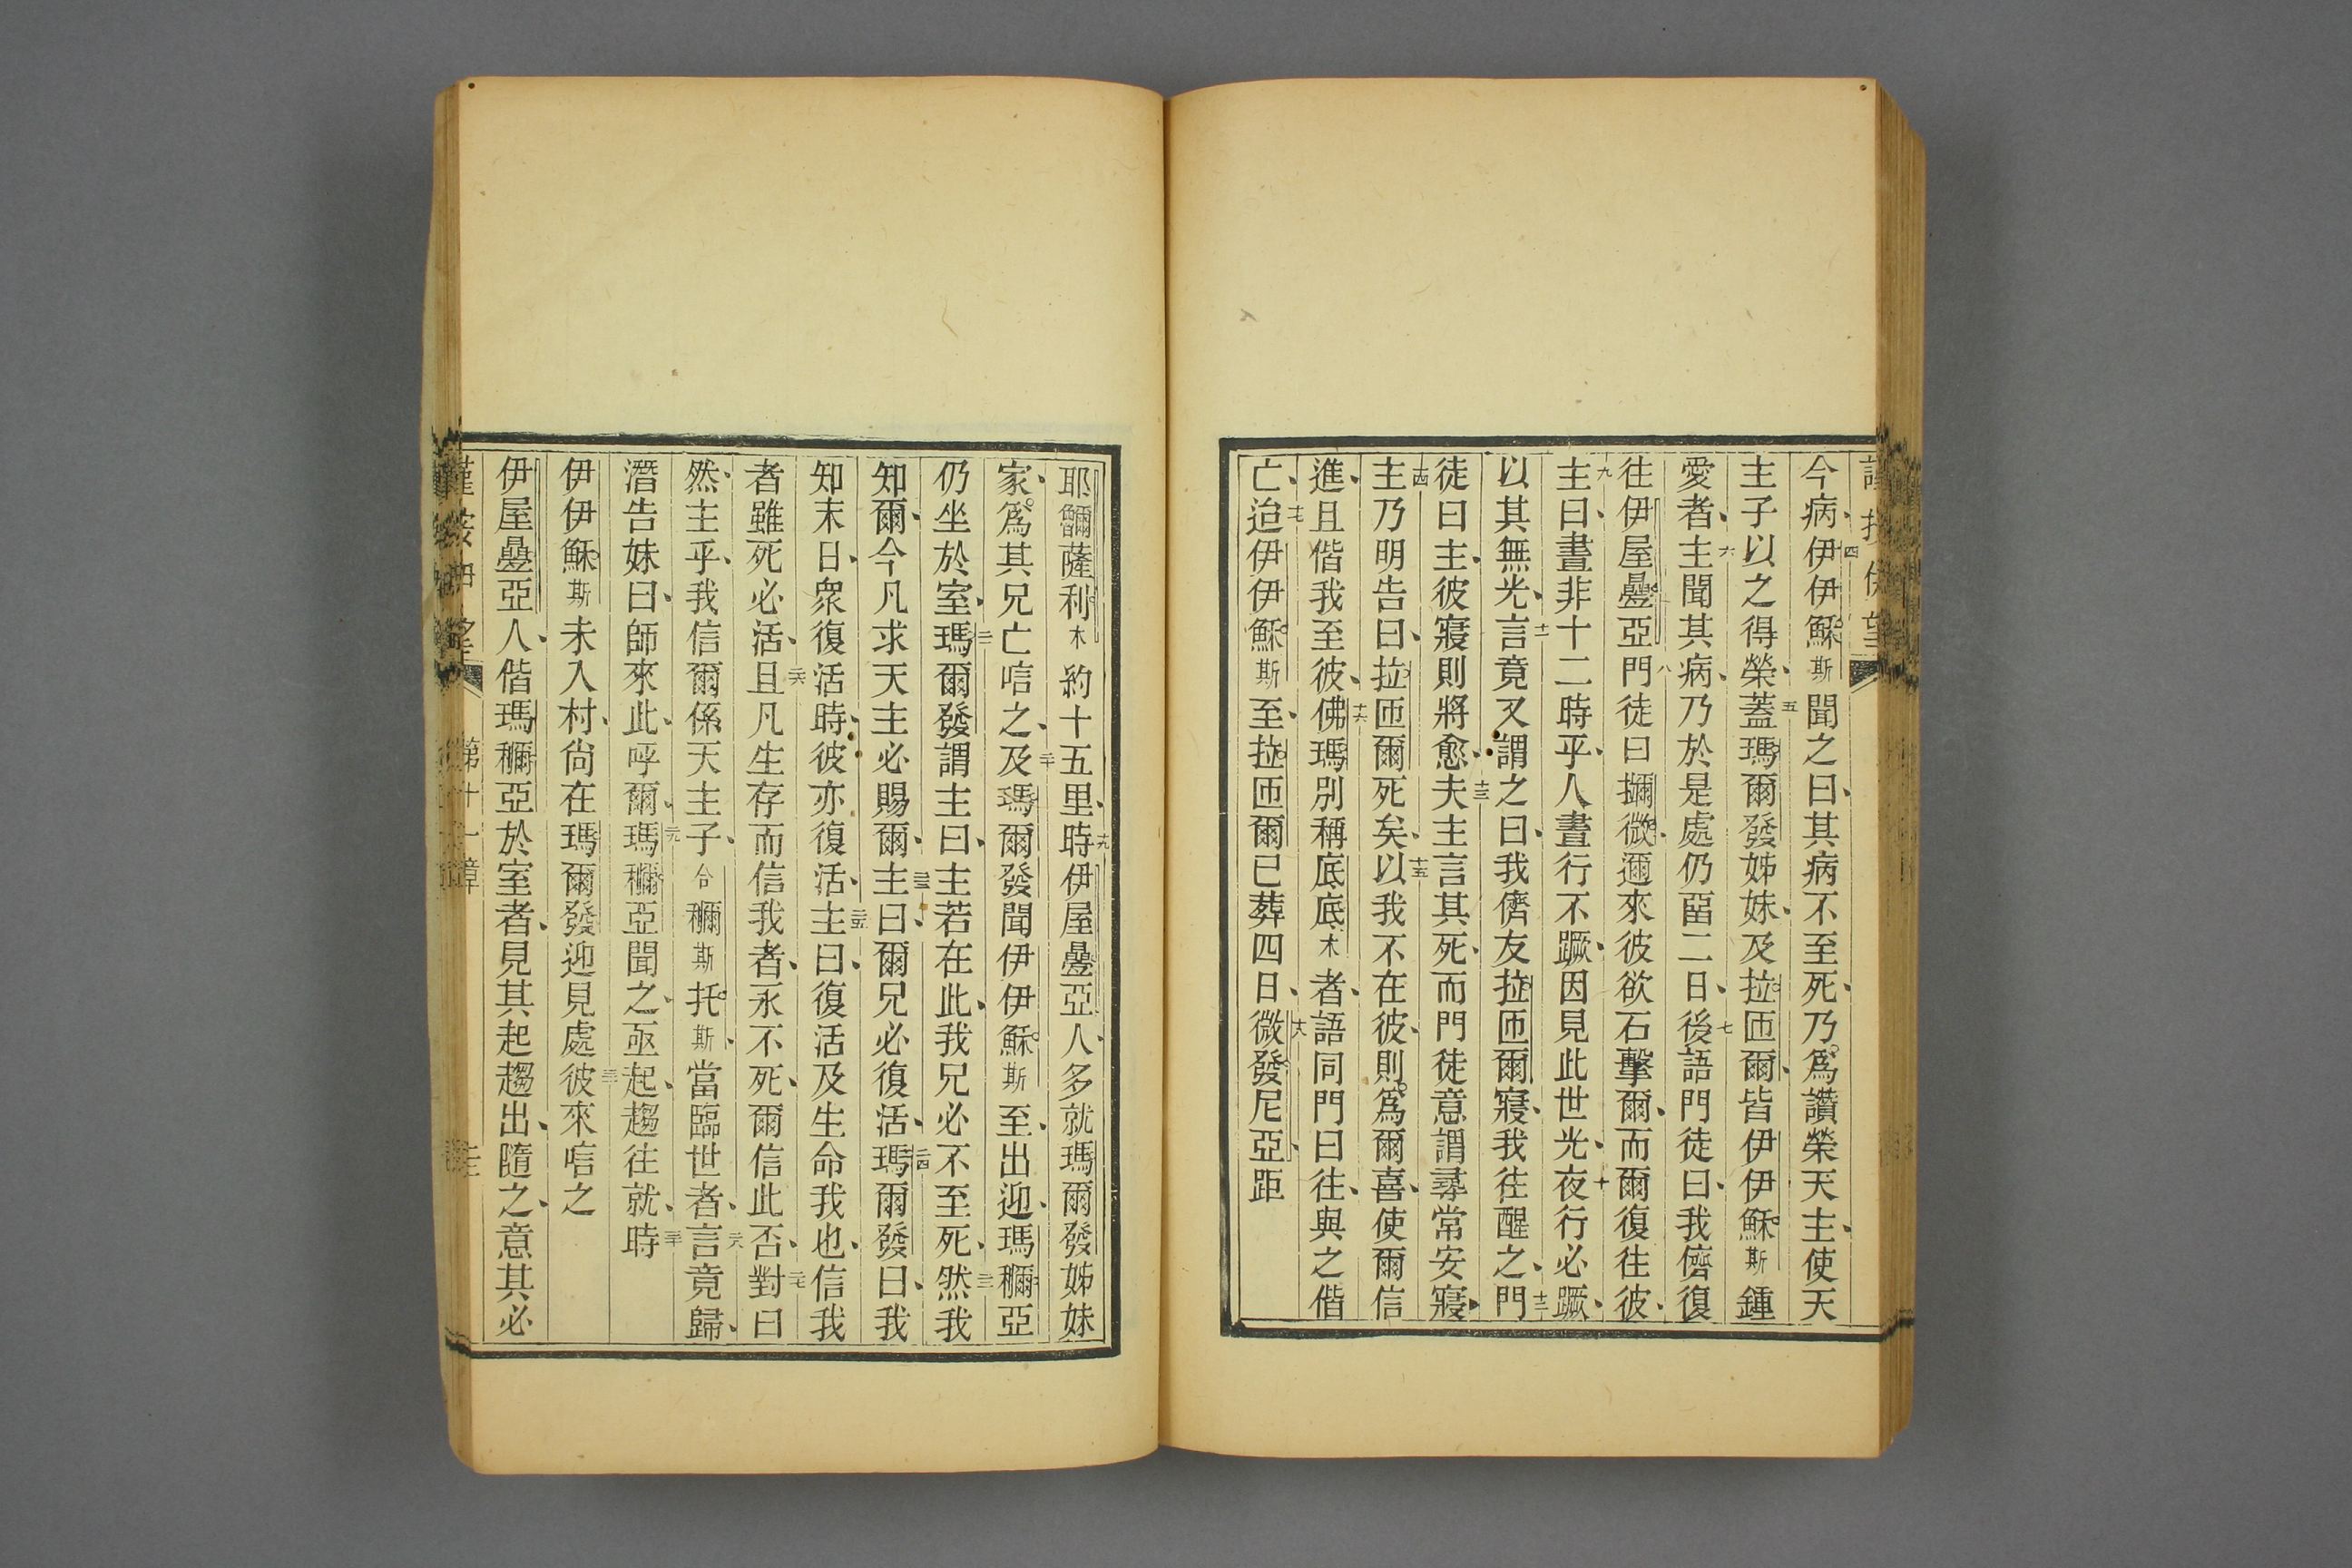 今病、四伊伊穌斯聞之曰、其病不至死、乃爲讚榮天主、使天
主子以之得榮、五蓋瑪爾發姊妹、及拉匝爾、皆伊伊穌斯鍾
愛者、六主聞其病、乃於是處仍畱二日、七後語門徒曰、我儕復
往伊屋疊亞、八門徒曰、攡微、邇來彼欲石擊爾、而爾復往彼、
九主曰、晝非十二時乎、人晝行不蹶、因見此世光、十夜行必蹶、
以其無光、十一言竟又謂之曰、我儕友拉匝爾寢、我往醒之、十二門
徒曰、主、彼寢則將愈、十三夫主言其死、而門徒意謂尋常安寢、
十四主乃明告曰、拉匝爾死矣、十五以我不在彼、則爲爾喜、使爾信
進、且偕我至彼、十六佛瑪別稱底底木者、語同門曰、往、與之偕
亡、十七迨伊伊穌斯至、拉匝爾已葬四日、十八微發尼亞、距
耶豳薩利木約十五里、十九時伊屋疊亞人、多就瑪爾發姊妹
家、爲其兄亡唁之、二十及瑪爾發聞伊伊穌斯至、出迎、瑪穪亞
仍坐於室、二一瑪爾發謂主曰、主若在此、我兄必不至死、二二然我
知爾、今凡求天主必賜爾、二三主曰、爾兄必復活、二四瑪爾發曰、我
知末日、衆復活時、彼亦復活、二五主曰、復活及生命我也、信我
者雖死必活、二六且凡生存而信我者、永不死、爾信此否、二七對曰
然、主乎、我信爾係天主子、合穪斯托斯、當臨世者、二八言竟歸、
潛告妹曰、師來此、呼爾、二九瑪穪亞聞之、亟起、趨往就、三十時
伊伊穌斯未入村、尙在瑪爾發迎見處、三一彼來唁之
伊屋疊亞人、偕瑪穪亞於室者、見其起趨出、隨之、意其必
第十一章